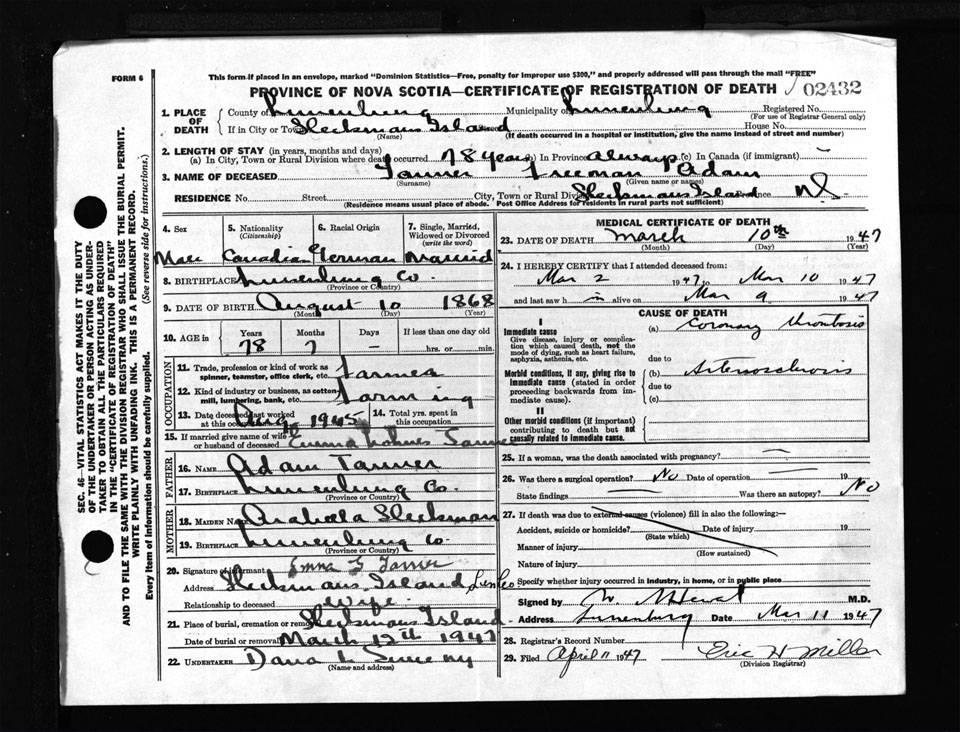 FORM 6
This form if placed in an envelope, marked "Dominion Statistics—Free, penalty for improper use $300," and properly addressed will pass through the mail "FREE"
PROVINCE OF NOVA SCOTIA—CERTIFICATE OF REGISTRATION OF DEATH 02432
1. PLACE OF DEATH
County of Lunenburg Municipality of Lunenburg Registered No.
(For use of Registrar General only)
If in City or Town Island House No.
(Name) (If death occurred in a hospital or institution, give the name instead of street and number)
2. LENGTH OF STAY (in years, months and days)
(a) In City, Town or Rural Division where death occurred 78 years (b) In Province always (c) In Canada (if immigrant) -
3. NAME OF DECEASED Tanner Freeman Adam
(Surname) (Given name or names)
RESIDENCE No. Street City, Town or Rural Div. Island Province N.S.
(Residence means usual place of abode. Post Office Address for residents in rural parts not sufficient)
4. Sex 5. Nationality (Citizenship) 6. Racial Origin 7. Single, Married, Widowed or Divorced (write the word)
Male Canadian German Married
8. BIRTHPLACE Lunenburg Co.
(Province or Country)
9. DATE OF BIRTH August 10 1868
(Month) (Year)
10. AGE in Years Months Days If less than one day old
78 7 — hrs. or min.
OCCUPATION
11. Trade, profession or kind of work as spinner, teamster, office clerk, etc. Farmer
12. Kind of industry or business, as cotton mill, lumbering, bank, etc. Farming
13. Date deceased last worked at this occupation Aug 10 1945
14. Total yrs. spent in this occupation
15. If married give name of wife or husband of deceased Emma Tanner
FATHER
16. NAME Adam Tanner
17. BIRTHPLACE Lunenburg Co.
(Province or Country)
MOTHER
18. MAIDEN NAME
19. BIRTHPLACE Lunenburg Co
(Province or Country)
20. Signature of informant Emma G Tanner
Address Island Lun Co.
Relationship to deceased Wife.
21. Place of burial, cremation or removal Island
Date of burial or removal March 12th 1947
22. UNDERTAKER Dana L
(Name and address)
MEDICAL CERTIFICATE OF DEATH
23. DATE OF DEATH March 10th 1947
(Month) (Day) (Year)
24. I HEREBY CERTIFY that I attended deceased from:
Mar 2 1947 to Mar 10 1947
and last saw h im alive on Mar 9 1947
CAUSE OF DEATH
I
Immediate cause (a) Coronary thrombosis
Give disease, injury or complication which caused death, not the mode of dying, such as heart failure, asphyxia, asthenia, etc.
due to
Morbid conditions, if any, giving rise to immediate cause (stated in order proceeding backwards from immediate cause) (b) Arteriosclerosis
due to
(c)
II
Other morbid conditions (if important) contributing to death but not causally related to immediate cause.
25. If a woman, was the death associated with pregnancy?
26. Was there a surgical operation? No Date of operation 19
State findings Was there an autopsy? No
27. If death was due to external causes (violence) fill in also the following:—
Accident, suicide or homicide? Date of injury 19
(State which)
Manner of injury
(How sustained)
Nature of injury
Specify whether injury occurred in industry, in home, or in public place
Signed by M.D.
Address Lunenburg Date Mar 11 1947
28. Registrar's Record Number
29. Filed April 11 1947 Eric H Miller
(Division Registrar)
SEC. 46—VITAL STATISTICS ACT MAKES IT THE DUTY
OF THE UNDERTAKER OR PERSON ACTING AS UNDERTAKER TO OBTAIN ALL THE PARTICULARS REQUIRED
IN THE "CERTIFICATE OF REGISTRATION OF DEATH"
AND TO FILE THE SAME WITH THE DIVISION REGISTRAR WHO SHALL ISSUE THE BURIAL PERMIT.
WRITE PLAINLY WITH UNFADING INK. THIS IS A PERMANENT RECORD.
Every item of Information should be carefully supplied. (See reverse side for instructions.)